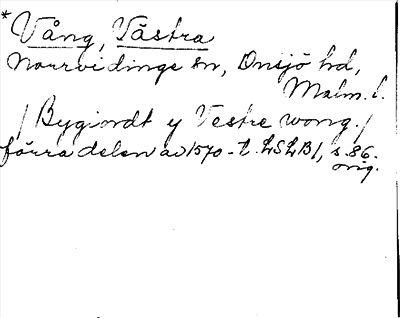 * Vång, Västra
Norrvidinge sn, Onsjö hd,
Malm. l.
/ Bygiordt y Vestre wong. /
förra delen av 1570-t. LSLB1, s. 86.
orig.